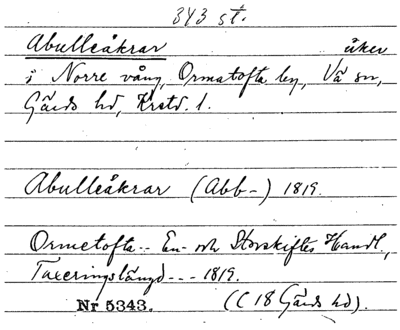 343 st.
Abullåkrar åker
i Norre vång, Ormatofta by, Vä sn,
Gärds hd, Krstd. l.
Abullåkrar (Abb-) 1819.
Ormetofta -- En- och Storskiftes Handl.,
Taxeringslängd --- 1819.
Nr 5343. (C 18 Gärds hd).